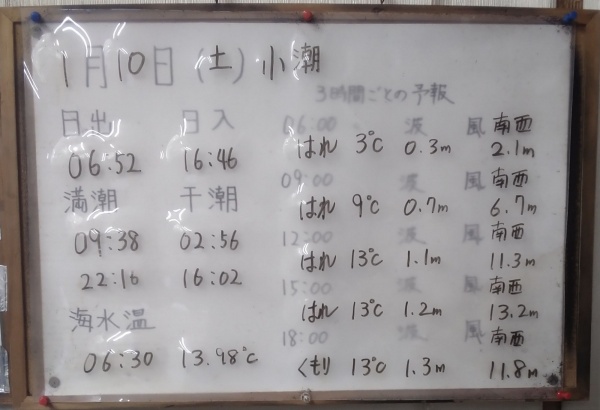 1月10日(土)小潮
3時間ごとの予報
日出 日入
06:52 16:46
満潮 干潮
09:38 02:56
22:16 16:02
海水温
06:30 13.98℃
06:00 波 風 南西
はれ 3℃ 0.3m 2.1m
09:00 波 風 南西
はれ 9℃ 0.7m 6.7m
12:00 波 風 南西
はれ 13℃ 1.1m 11.3m
15:00 波 風 南西
はれ 13℃ 1.2m 13.2m
18:00 波 風 南西
くもり 13℃ 1.3m 11.8m